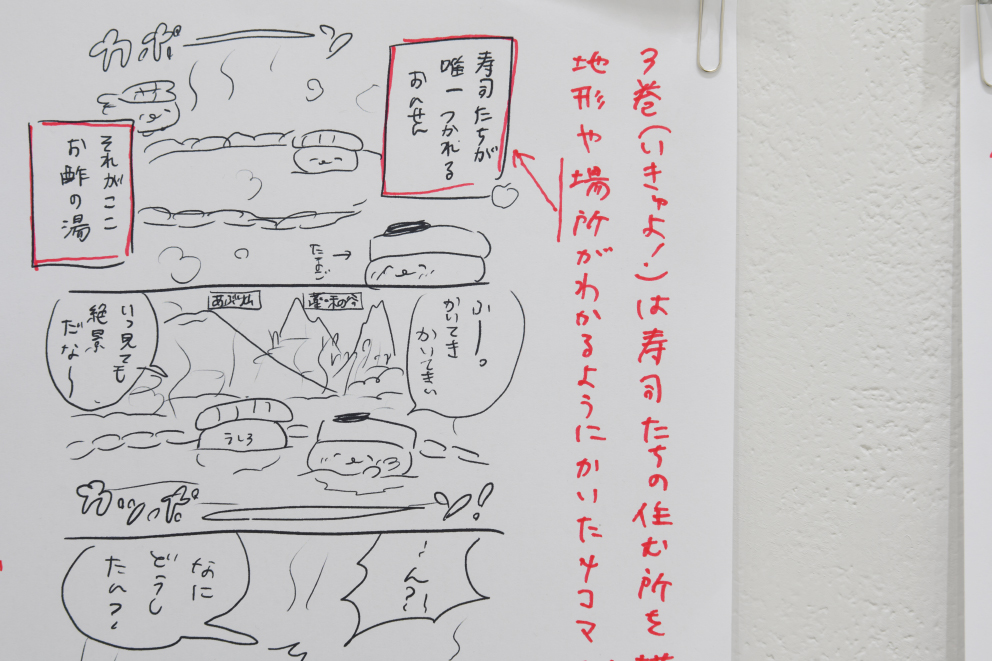 3巻(いきゅよ!)は寿司たちの住む所を
地形や場所がわかるようにかいた4コマ
カポーン
寿司たちが
唯一つかれる
おんせん
それがここ
お酢の湯
たまご→
ふーっ。
かいてき
かいてきぃ
いつ見ても
絶景
だな〜
うしろ
カッポーン!
ん?
なに
どうし
たん?